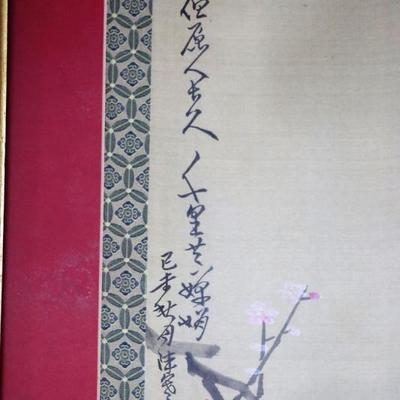 但愿人长久 千里共嬋娟
己未秋月陈